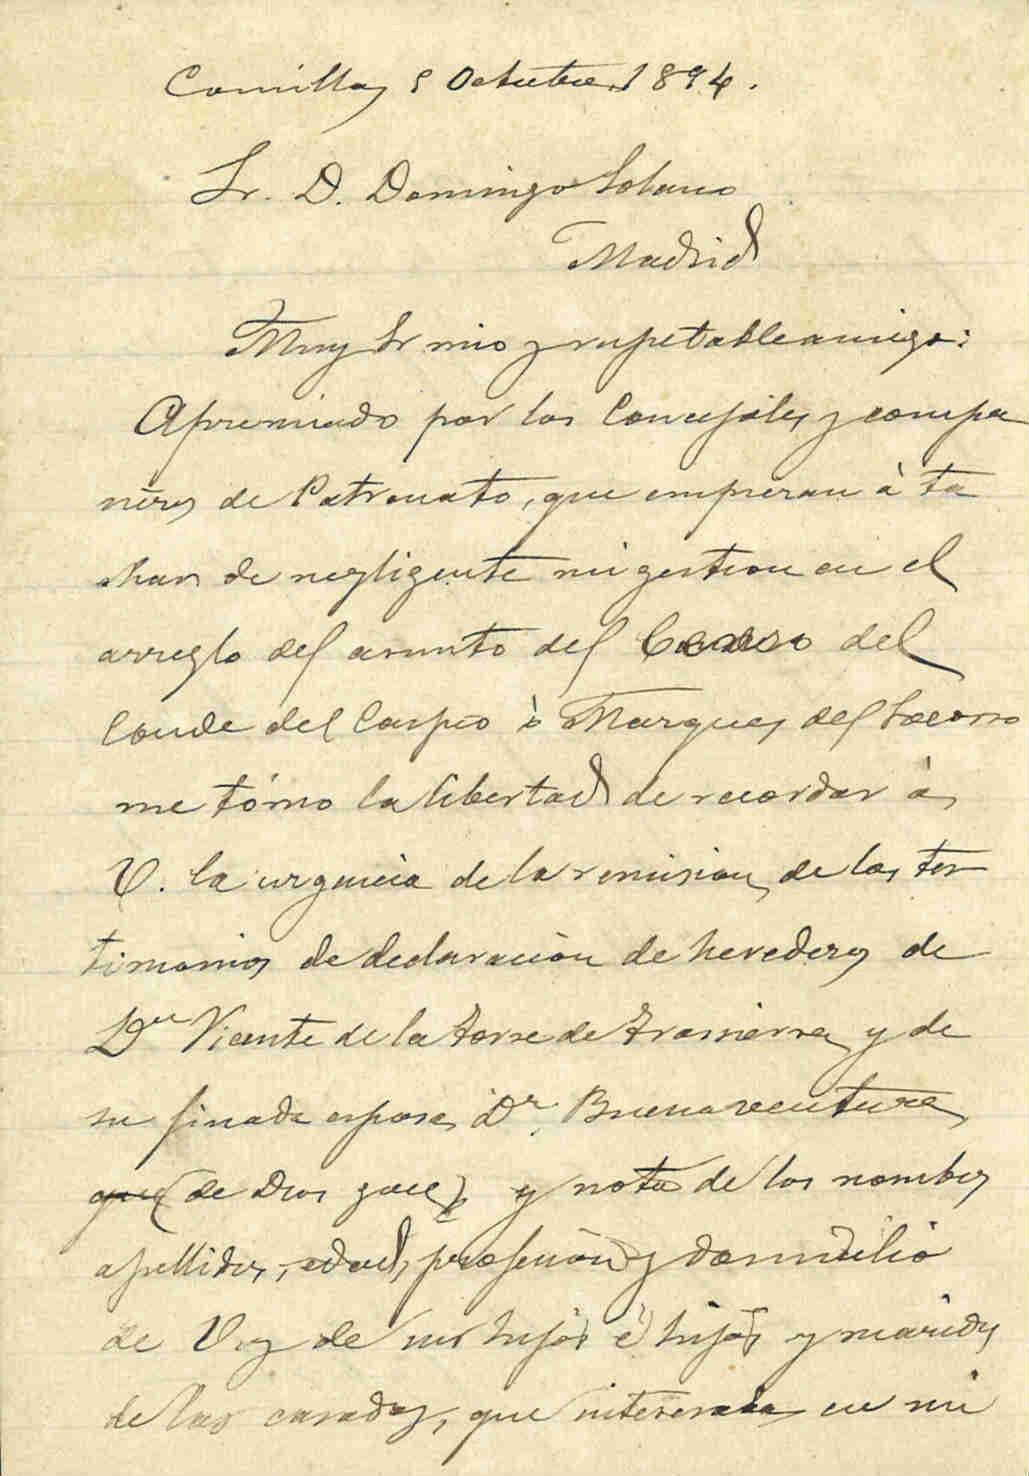 Comillas 5 Octubre 1894.
Sr. D. Domingo Solano
Madrid
Muy Sr mio y respetable amigo:
Apremiado por los Concejales y compa
ñeros de Patronato, que empiezan à ta
char de negligente mi gestion en el
arreglo del asunto del Censo del
Conde del Carpio ò Marques del Socorro
me tómo la libertad de recordar à
V. la urgencia de la remision de los tes
timonios de declaración de herederos de
Dn Vicente de la Torre de Trasierra y de
su finada esposa Da. Buenaventura
que (de Dios goce) y nota de los nombres
apellidos, edad, profesión y domicilio
de V. y de sus hijos é hijas y maridos
de las casadas, que interesaba en mi